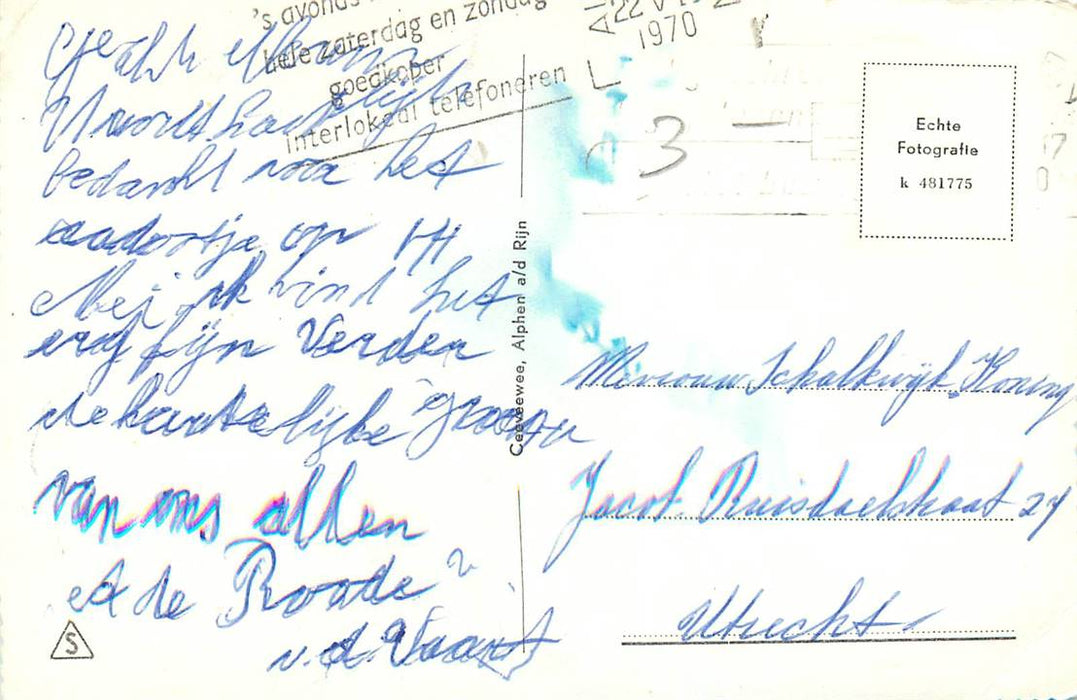 's avonds
hele zaterdag en zondag
goedkoper
interlokaal telefoneren
22 V
1970
3
Echte
Fotografie
k 481775
Geachte Mevrouw
U wordt hartelijk
bedankt voor het
op 14
Mei, ik vind het
erg fijn Verder
de hartelijke groeten
van ons allen
A de Roode
v.d. Vaart
S
Ceeveewee, Alphen a/d Rijn
Mevrouw Schalkwijk Koning
Jacob Ruisdaelstraat 24
Utrecht